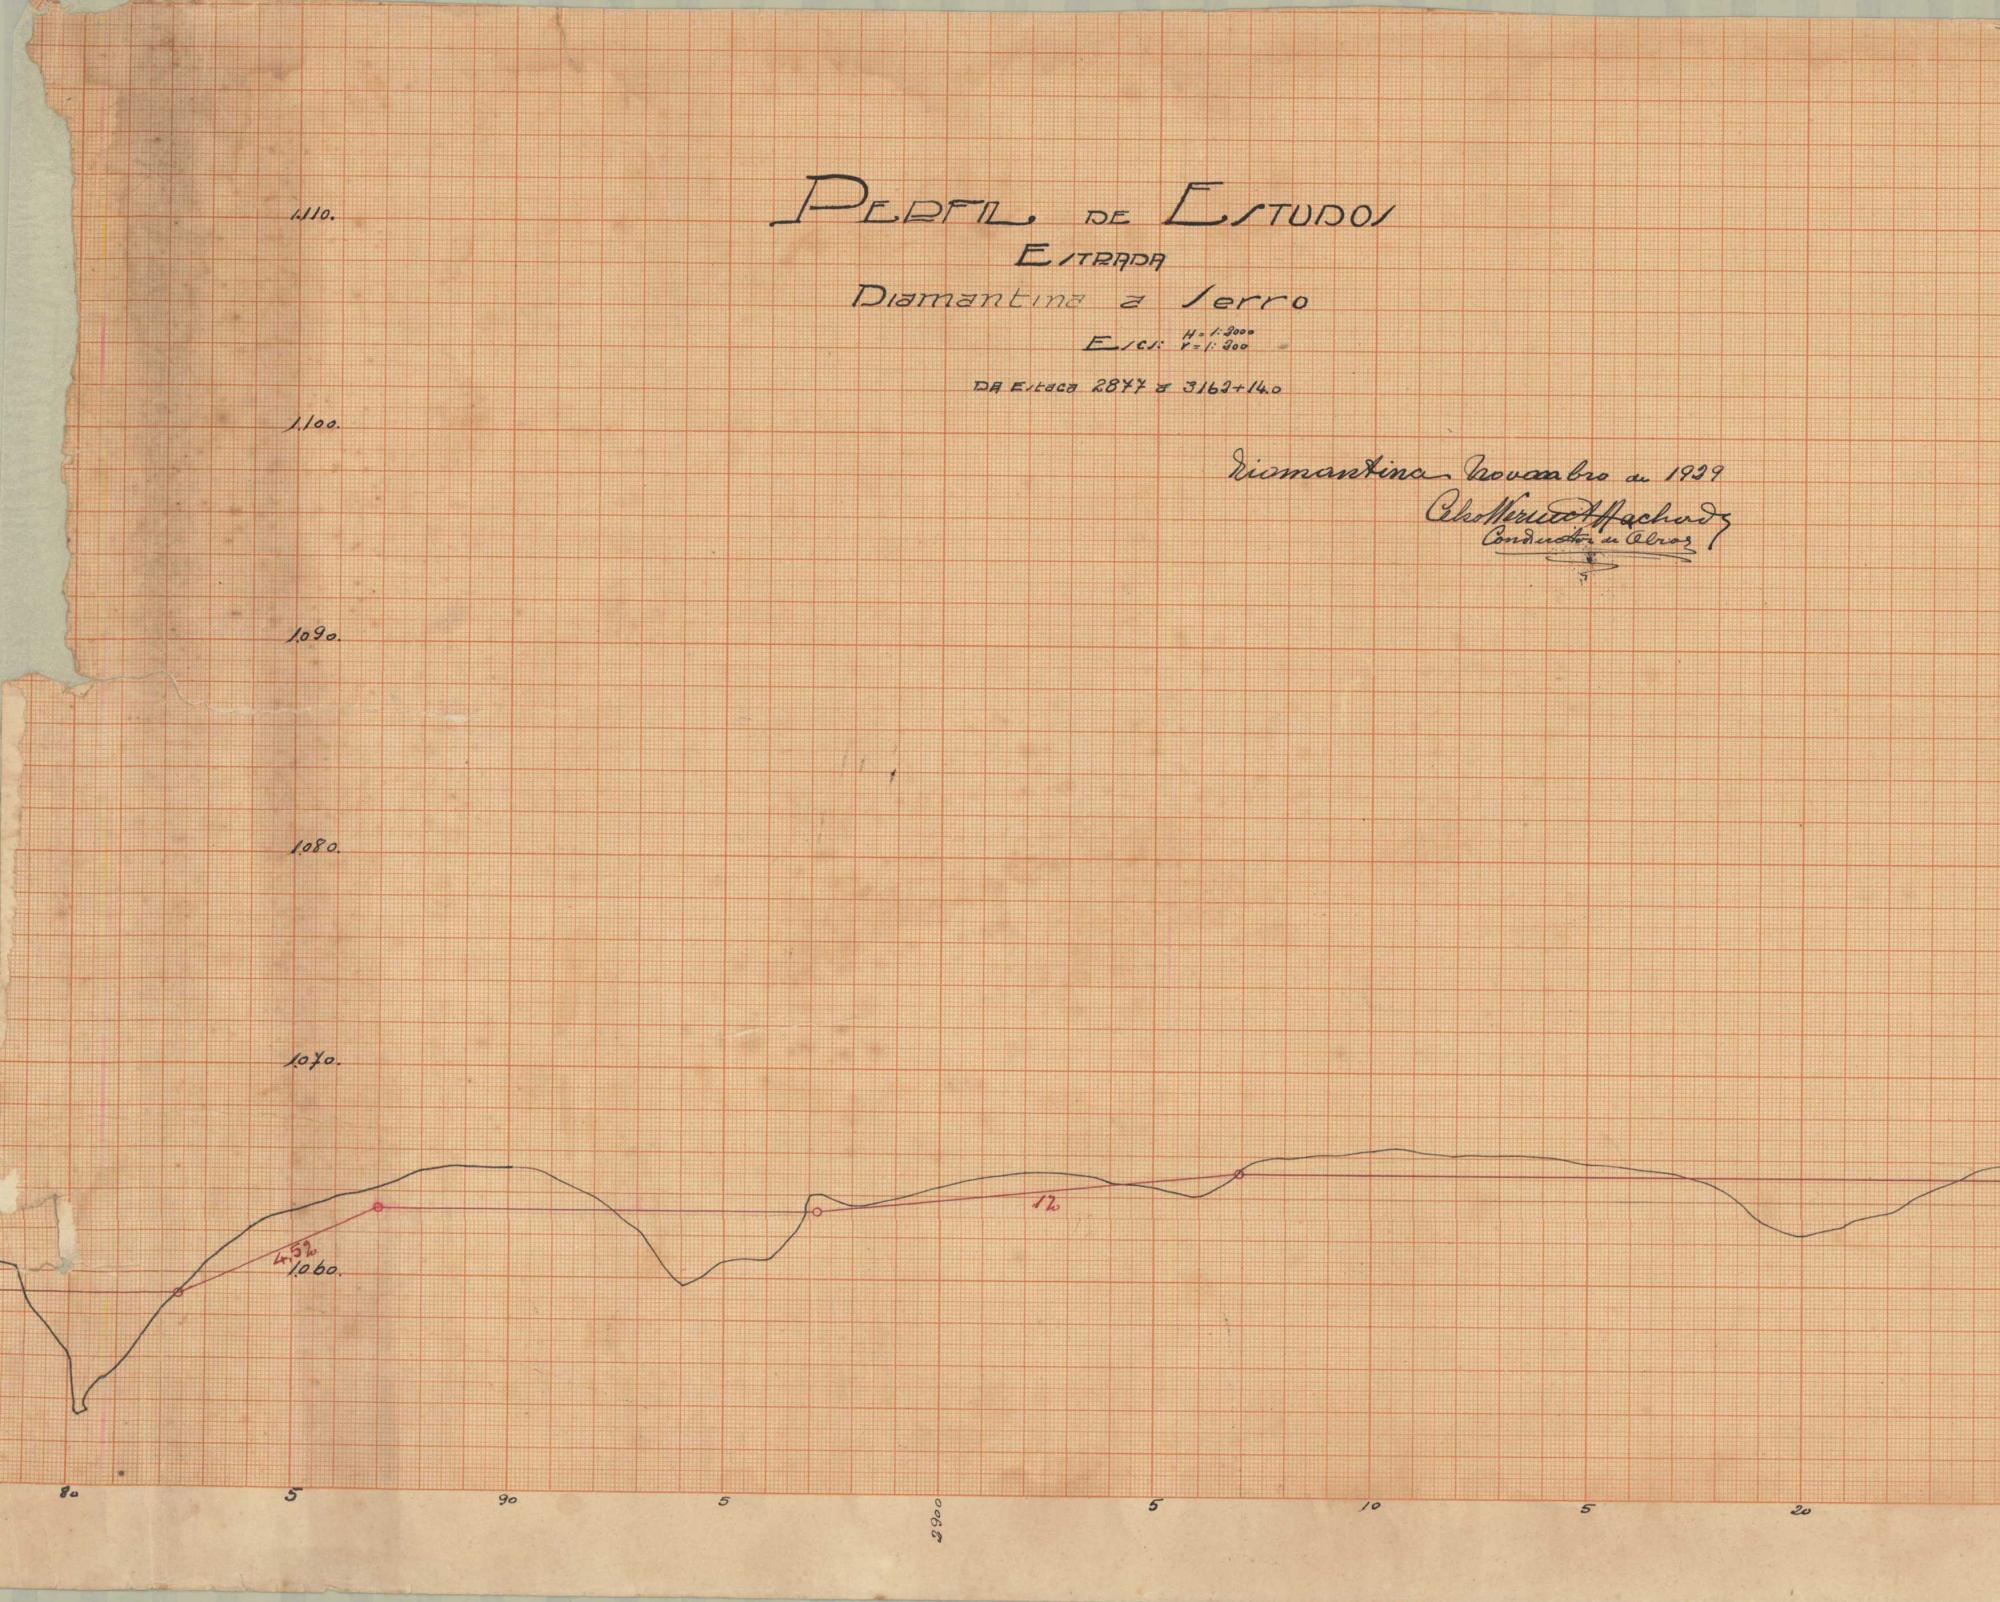 PERFIL DE ESTUDOS
ESTRADA
Diamantina a Serro
Escs: H = 1:2000
V = 1:200
DA Estaca 2877 a 3162+14.0
Diamantina Novembro de 1929
Celso Machado
Conductor de Obras
1.110.
1.100.
1.090.
1.080.
1.070.
1.060.
4,5%
1%
80 5 90 5 2900 5 10 5 20